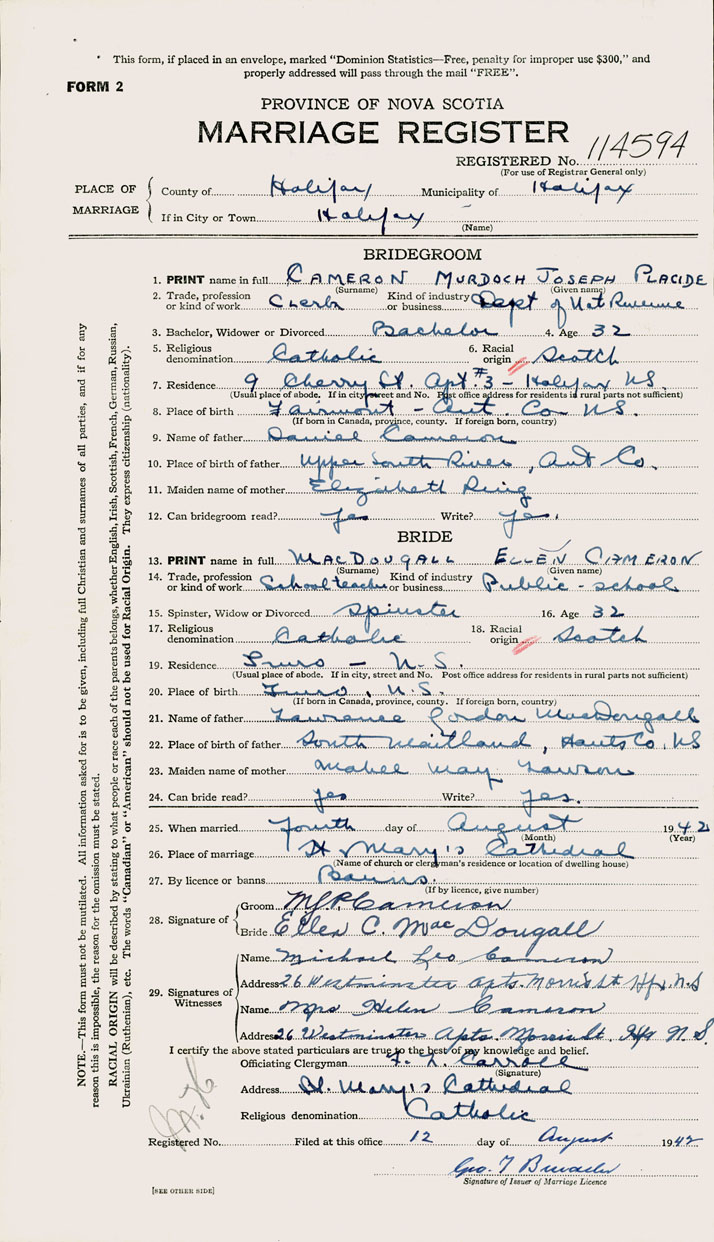 This form, if placed in an envelope, marked "Dominion Statistics—Free, penalty for improper use $300," and
properly addressed will pass through the mail "FREE".
FORM 2
PROVINCE OF NOVA SCOTIA
MARRIAGE REGISTER
REGISTERED No. 114594
(For use of Registrar General only)
PLACE OF MARRIAGE
County of Halifax Municipality of Halifax
If in City or Town Halifax
(Name)
BRIDEGROOM
1. PRINT name in full CAMERON MURDOCH JOSEPH PLACIDE
(Surname) (Given name)
2. Trade, profession or kind of work Clerk Kind of industry or business Dept of Nat Revenue
3. Bachelor, Widower or Divorced Bachelor 4. Age 32
5. Religious denomination Catholic 6. Racial origin Scotch
7. Residence 9 Cherry St. Apt #3 - Halifax NS.
(Usual place of abode. If in city street and No. Post office address for residents in rural parts not sufficient)
8. Place of birth Fairmont - Ant. Co. NS.
(If born in Canada, province, county. If foreign born, country)
9. Name of father Daniel Cameron
10. Place of birth of father Upper South River, Ant Co.
11. Maiden name of mother Elizabeth Ring
12. Can bridegroom read? yes Write? yes.
BRIDE
13. PRINT name in full MACDOUGALL ELLEN CAMERON
(Surname) (Given name)
14. Trade, profession or kind of work School teacher Kind of industry or business Public - school
15. Spinster, Widow or Divorced Spinster 16. Age 32
17. Religious denomination Catholic 18. Racial origin Scotch
19. Residence Truro - N.S.
(Usual place of abode. If in city, street and No. Post office address for residents in rural parts not sufficient)
20. Place of birth Truro, N.S.
(If born in Canada, province, county. If foreign born, country)
21. Name of father Lawrence Gordon MacDougall
22. Place of birth of father South Maitland, Hants Co, NS
23. Maiden name of mother Mabel May Lawson
24. Can bride read? yes Write? yes.
25. When married fourth day of August 1942
(Month) (Year)
26. Place of marriage St Mary's Cathedral
(Name of church or clergyman's residence or location of dwelling house)
27. By licence or banns Banns.
(If by licence, give number)
28. Signature of
Groom MJP Cameron
Bride Ellen C. MacDougall
29. Signatures of Witnesses
Name Michael Leo Cameron
Address 26 Westminster Apts. Morris St Hfx. N.S
Name Mrs Helen Cameron
Address 26 Westminster Apts. Morris St. Hfx N.S.
I certify the above stated particulars are true to the best of my knowledge and belief.
Officiating Clergyman Carroll
(Signature)
Address St. Mary's Cathedral
Religious denomination Catholic
Registered No. Filed at this office 12 day of August 1942
Geo. T
Signature of Issuer of Marriage Licence
[SEE OTHER SIDE]
NOTE.—This form must not be mutilated. All information asked for is to be given, including full Christian and surnames of all parties, and if for any
reason this is impossible, the reason for the omission must be stated.
RACIAL ORIGIN will be described by stating to what people or race each of the parents belongs, whether English, Irish, Scottish, French, German, Russian,
Ukrainian (Ruthenian), etc. The words "Canadian" or "American" should not be used for Racial Origin. They express citizenship (nationality).